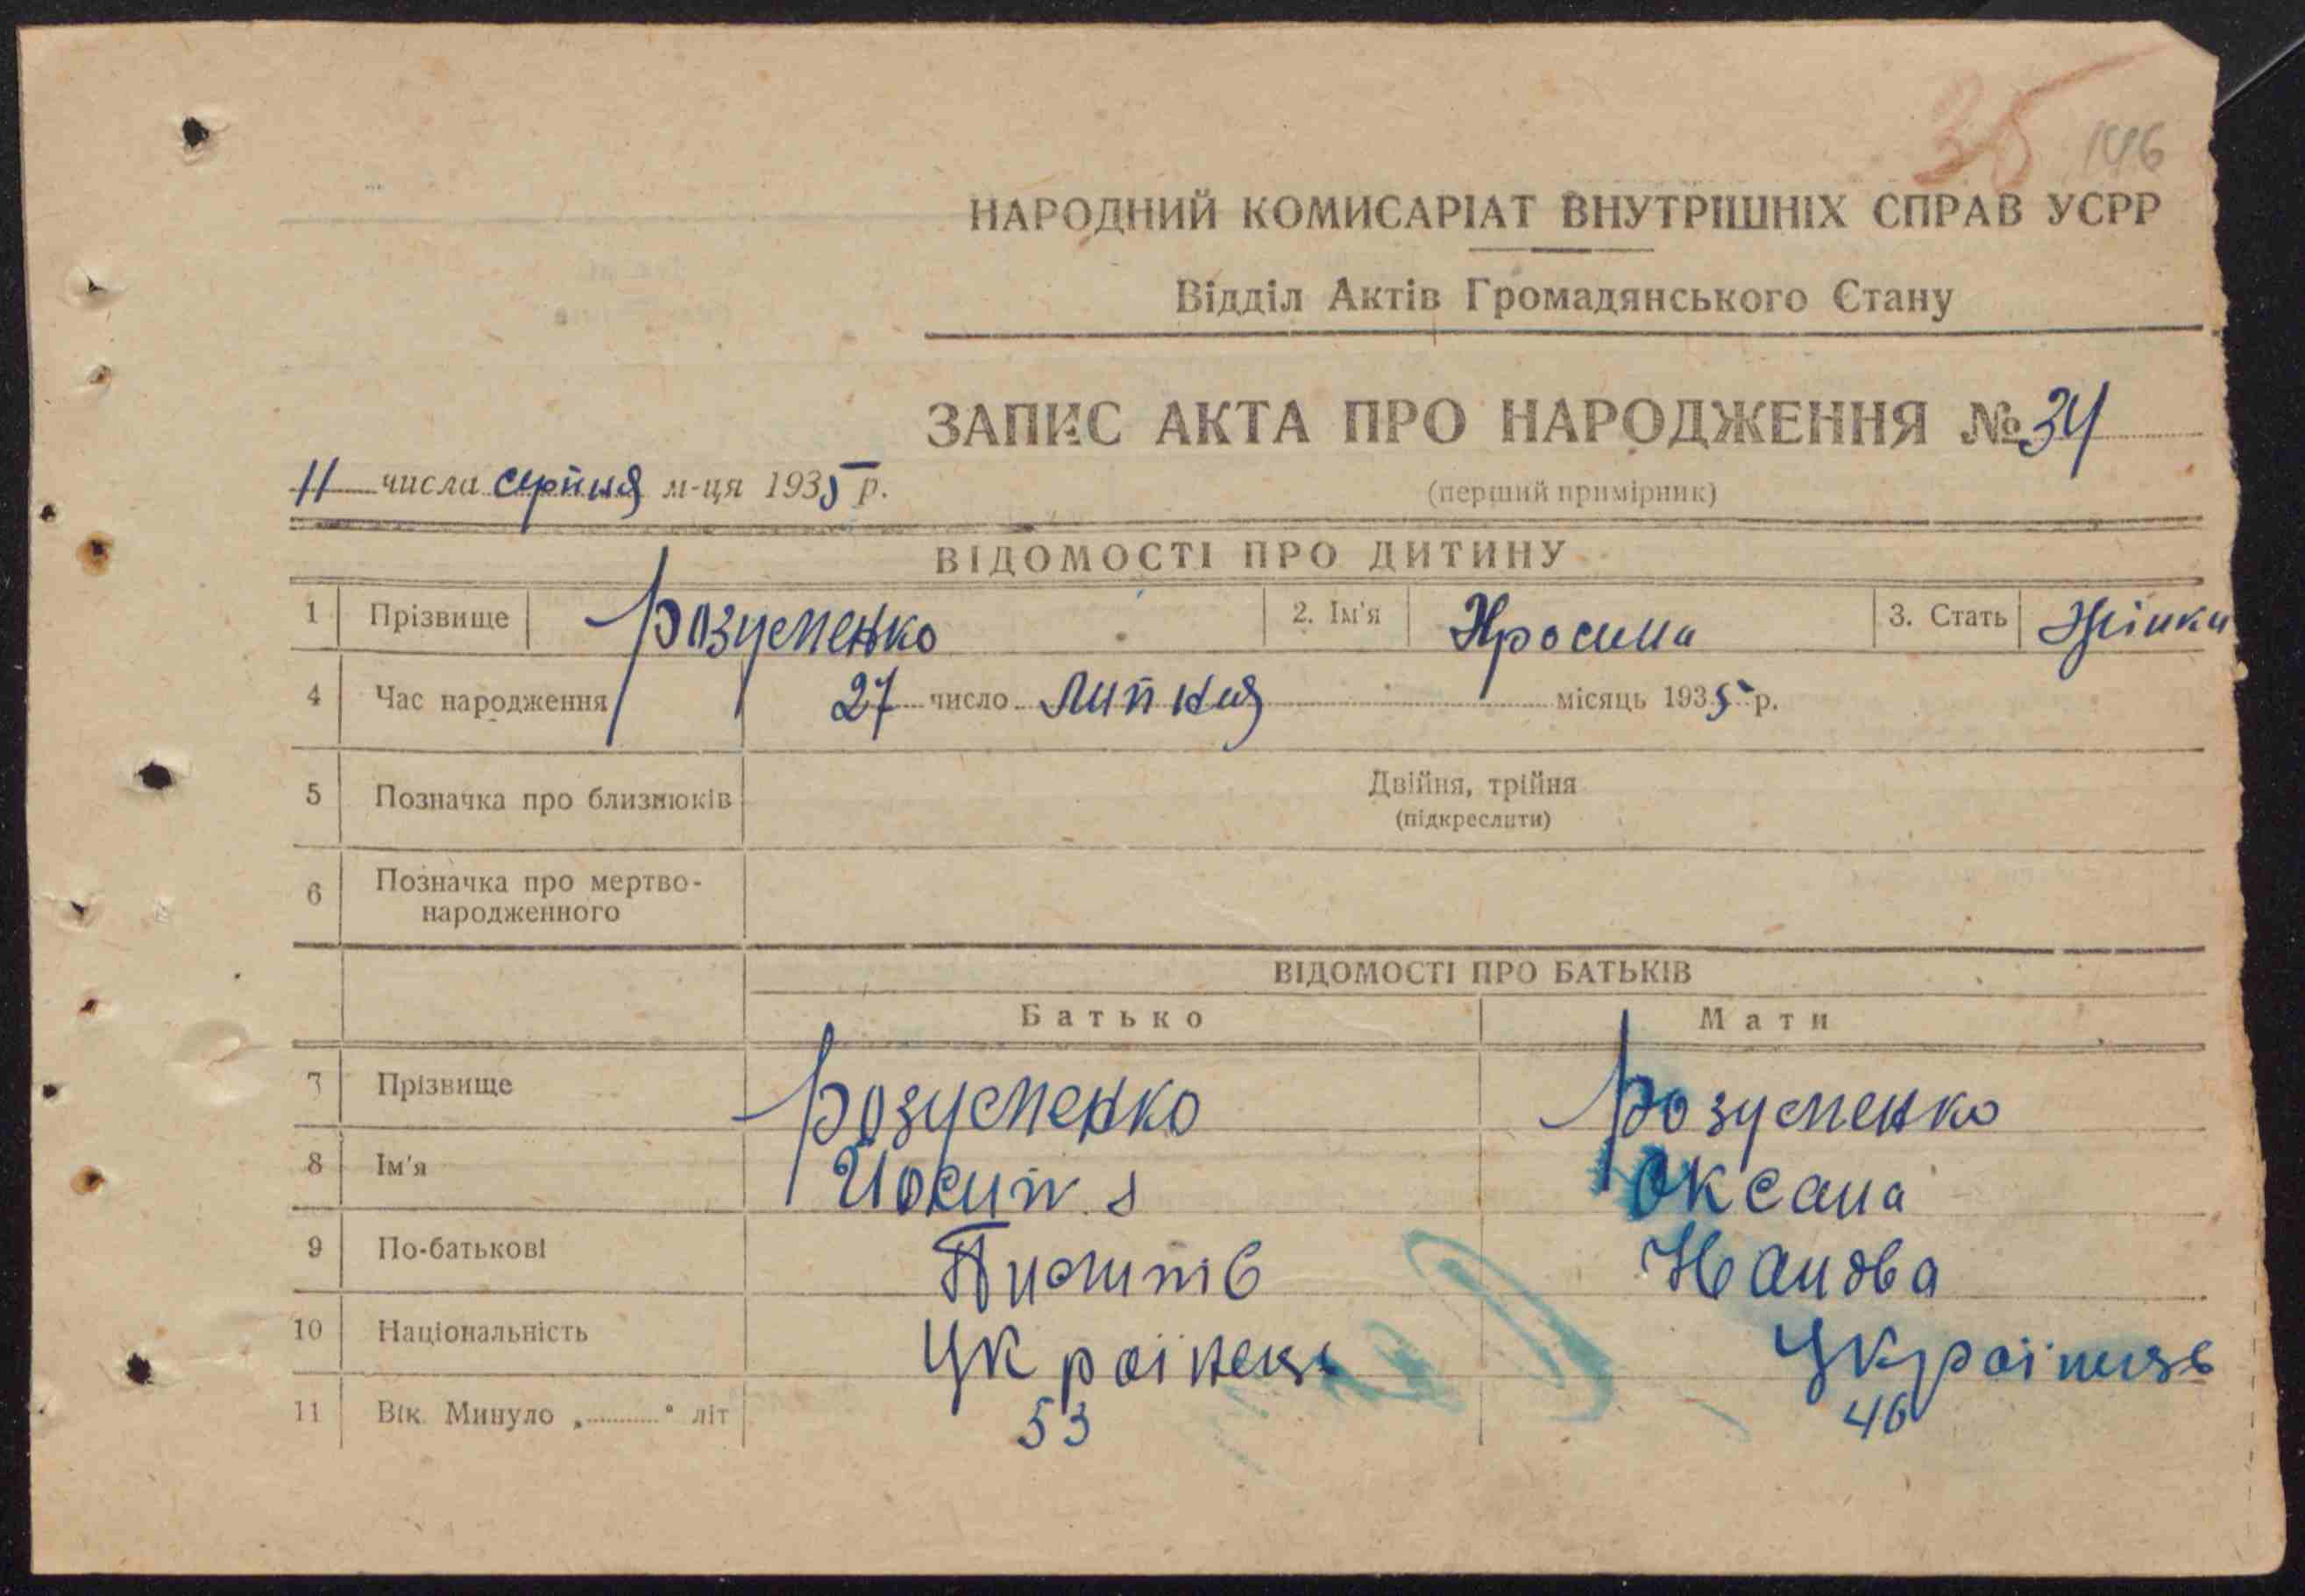 35 146
НАРОДНИЙ КОМИСАРІАТ ВНУТРІШНІХ СПРАВ УСРР
Відділ Актів Громадянського Стану
ЗАПИС АКТА ПРО НАРОДЖЕННЯ № 34
11 числа серпня м-ця 1935 р.
(перший примірник)
ВІДОМОСТІ ПРО ДИТИНУ
1 Прізвище Розуменко 2. Ім'я 3. Стать Жінки
4 Час народження 27 число липня місяць 1935 р.
5 Позначка про близнюків Двійня, трійня
(підкреслити)
6 Позначка про мертво-
народженного
ВІДОМОСТІ ПРО БАТЬКІВ
Батько Мати
7 Прізвище Розуменко Розуменко
8 Ім'я Йосип Оксана
9 По-батькові
10 Національність Українець Українць
11 Вік. Минуло „............“ літ 53 46